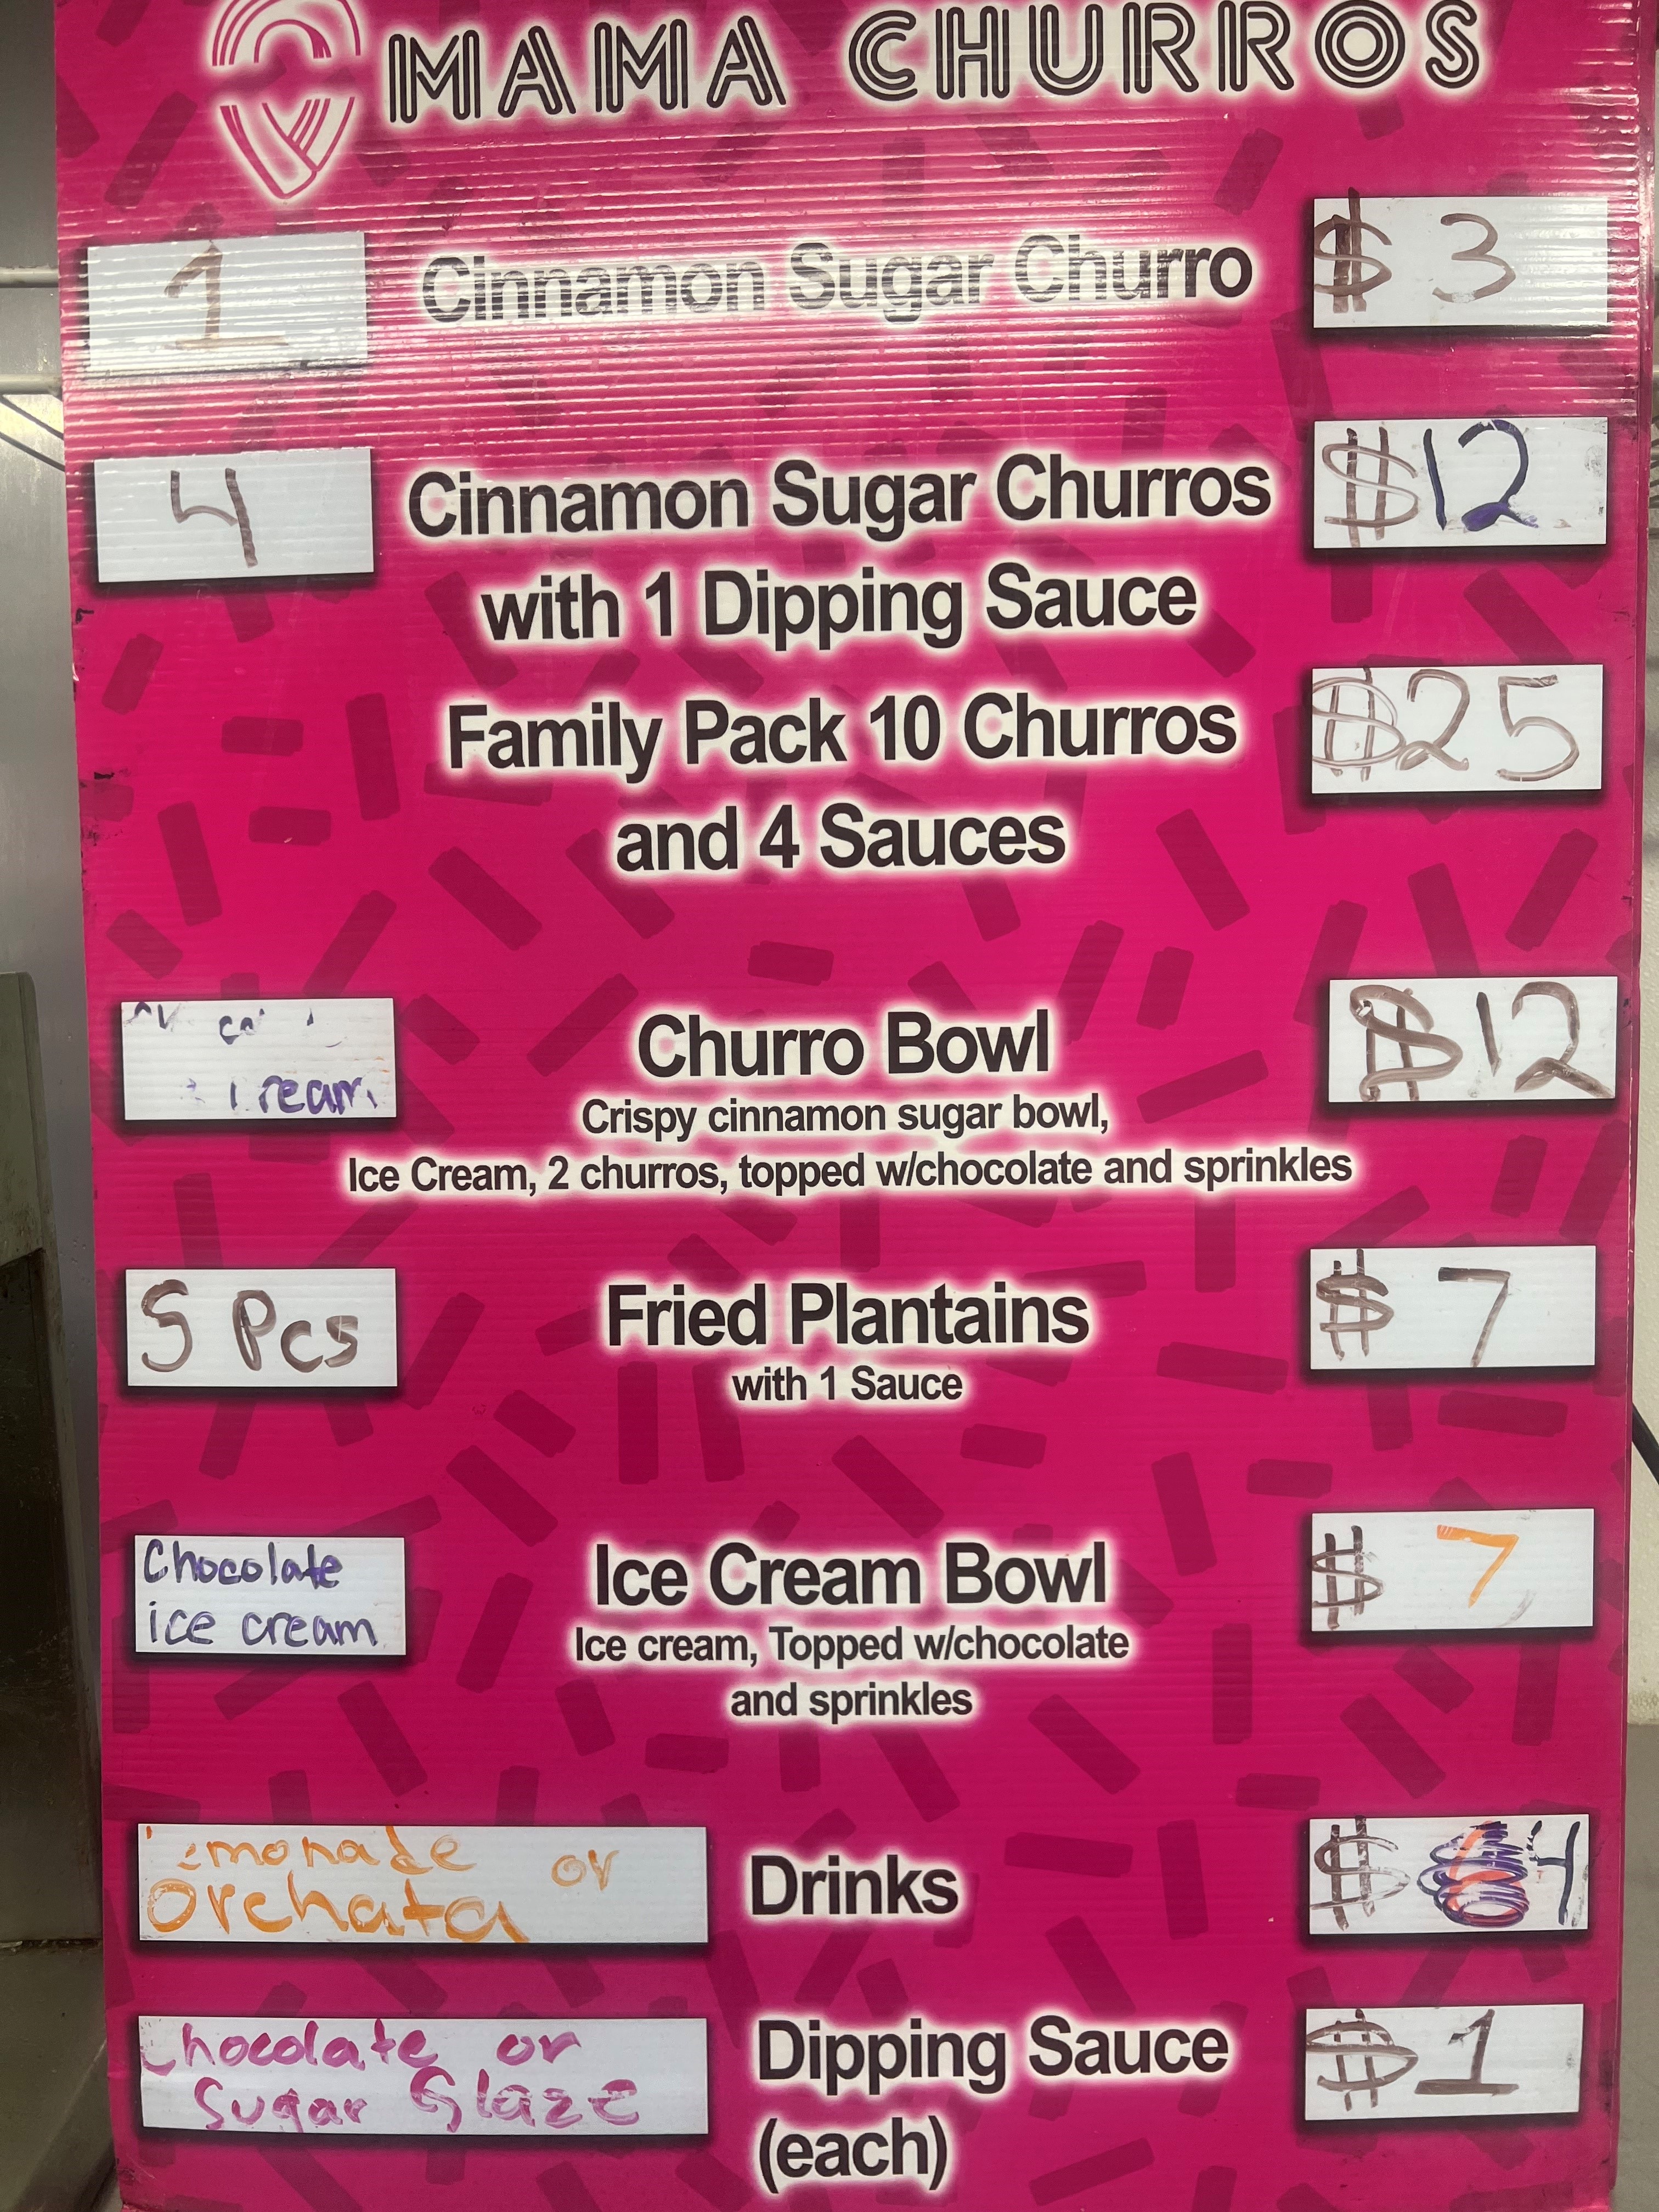 MAMA CHURROS
1 Cinnamon Sugar Churro $3
4 Cinnamon Sugar Churros $12
with 1 Dipping Sauce
Family Pack 10 Churros $25
and 4 Sauces
Churro Bowl $12
Crispy cinnamon sugar bowl,
Ice Cream, 2 churros, topped w/chocolate and sprinkles
5 Pcs Fried Plantains $7
with 1 Sauce
Chocolate
ice cream
Ice Cream Bowl $7
Ice cream, Topped w/chocolate
and sprinkles
lemonade or
Orchata
Drinks $4
Chocolate or
Sugar Glaze
Dipping Sauce $1
(each)